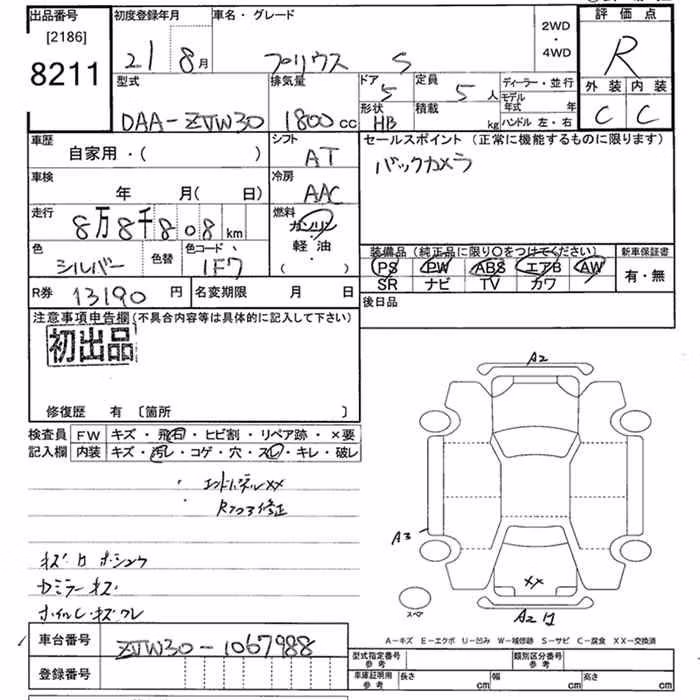 出品番号 初度登録年月 車名・グレード 2WD・4WD 評価点
[2186]
8211
21 8月 プリウス S R
外装 内装
C C
型式 排気量 ドア 定員 ディーラー・並行
DAA-ZVW30 1800cc 5 5人 モデル年式 年
形状 積載 ハンドル 左・右
HB kg
車歴 シフト セールスポイント(正常に機能するものに限ります)
自家用・( ) AT バックカメラ
車検 冷房
年 月( 日) AAC
走行 燃料
8万8千808km ガソリン・軽油・( )
色 色替 色コード
シルバー 1F7
装備品(純正品に限り〇をつけてください) 新車保証書
PS PW ABS エアB AW 有・無
SR ナビ TV カワ
R券 13190円 名変期限 月 日 後日品
注意事項申告欄(不具合内容等は具体的に記入して下さい)
初出品
修復歴 有 〔箇所 〕
検査員記入欄 FW キズ・飛石・ヒビ割・リペア跡・×要
内装 キズ・汚レ・コゲ・穴・スレ・キレ・破レ
エンドパネルXX
Rフロア修正
ホイルしキズクレ
A2
A3
XX
A2
スペア
A-キズ E-エクボ U-凹み W-補修跡 S-サビ C-腐食 XX-交換済
車台番号 ZVW30-1067988
登録番号
型式指定番号 参考 類別区分番号 参考
車庫証明用 参考 長さ cm 幅 cm 高さ cm